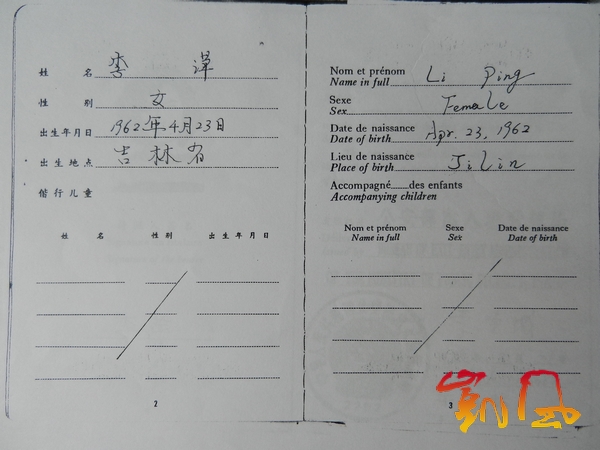 姓 名 李 萍
性 别 女
出生年月日 1962年4月23日
出生地点 吉林省
偕行儿童
姓 名 性别 出生年月日
2
Nom et prénom Li Ping
Name in full
Sexe Female
Sex
Date de naissance Apr. 23, 1962
Date of birth
Lieu de naissance Jilin
Place of birth
Accompagné......des enfants
Accompanying children
Nom et prénom Sexe Date de naissance
Name in full Sex Date of birth
3